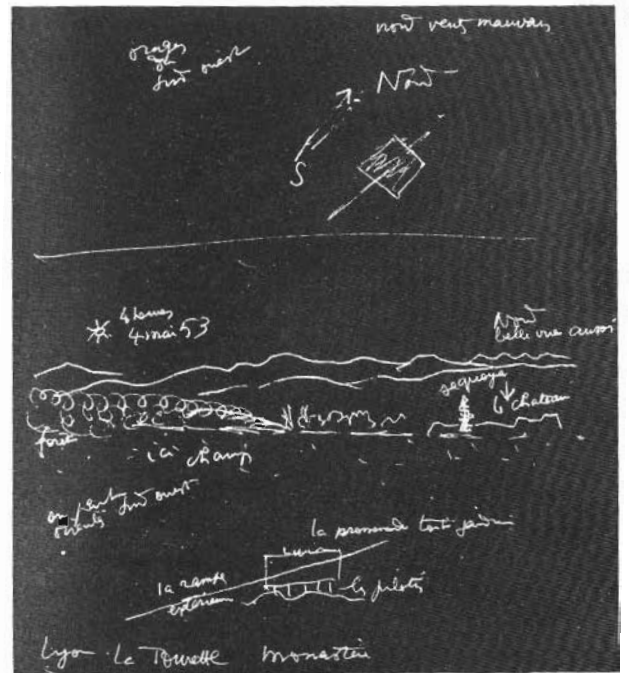 nord vent mauvais
orages
sud ouest
Nord
S
4 mai 53
Nord
belle vue aussi
sequoya
le chateau
foret
ici champ
sud ouest
la promenade toit jardin
la rampe
exterieure
les pilotis
Lyon La Tourette monastère